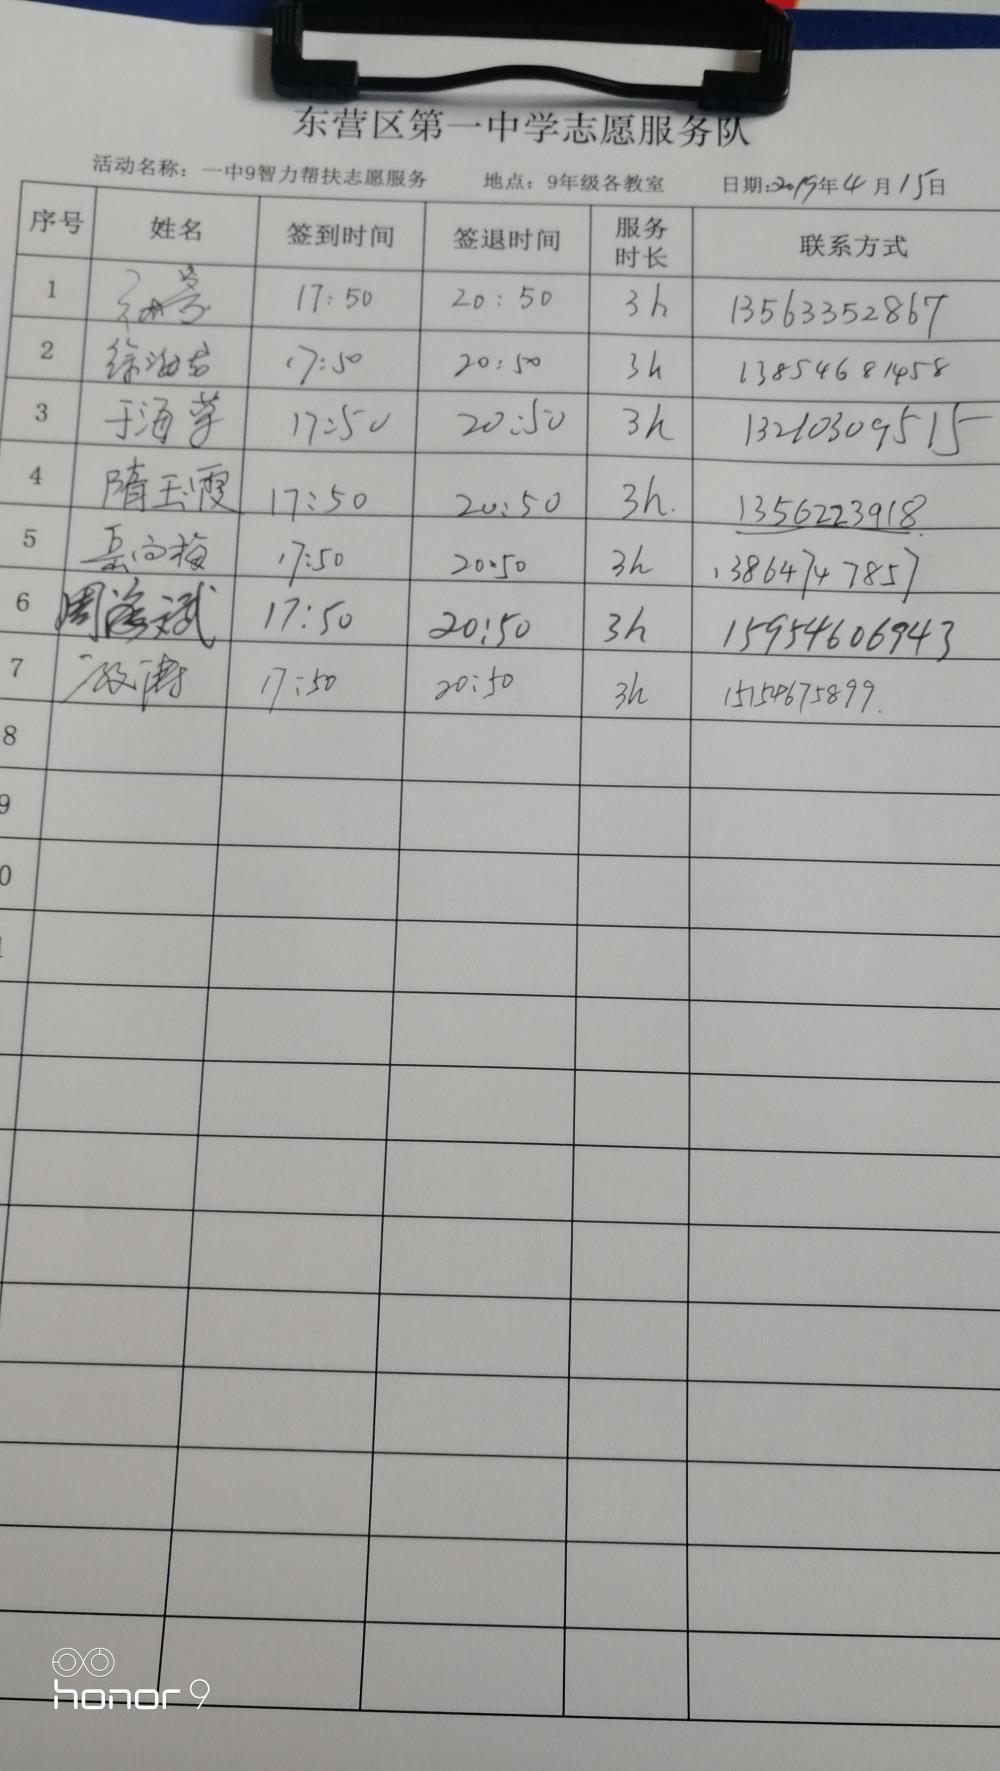 东营区第一中学志愿服务队
活动名称：一中9智力帮扶志愿服务 地点：9年级各教室 日期:2019年4月15日
序号 姓名 签到时间 签退时间 服务时长 联系方式
1 17:50 20:50 3h 13563352867
2 徐海 17:50 20:50 3h 13854681458
3 于海 17:50 20:50 3h 13210309515
4 隋玉霞 17:50 20:50 3h. 1356223918
5 岳向梅 17:50 20:50 3h 13864747857
6 周海斌 17:50 20:50 3h 15954606943
7 17:50 20:50 3h 15154675899.
8
9
0
honor 9